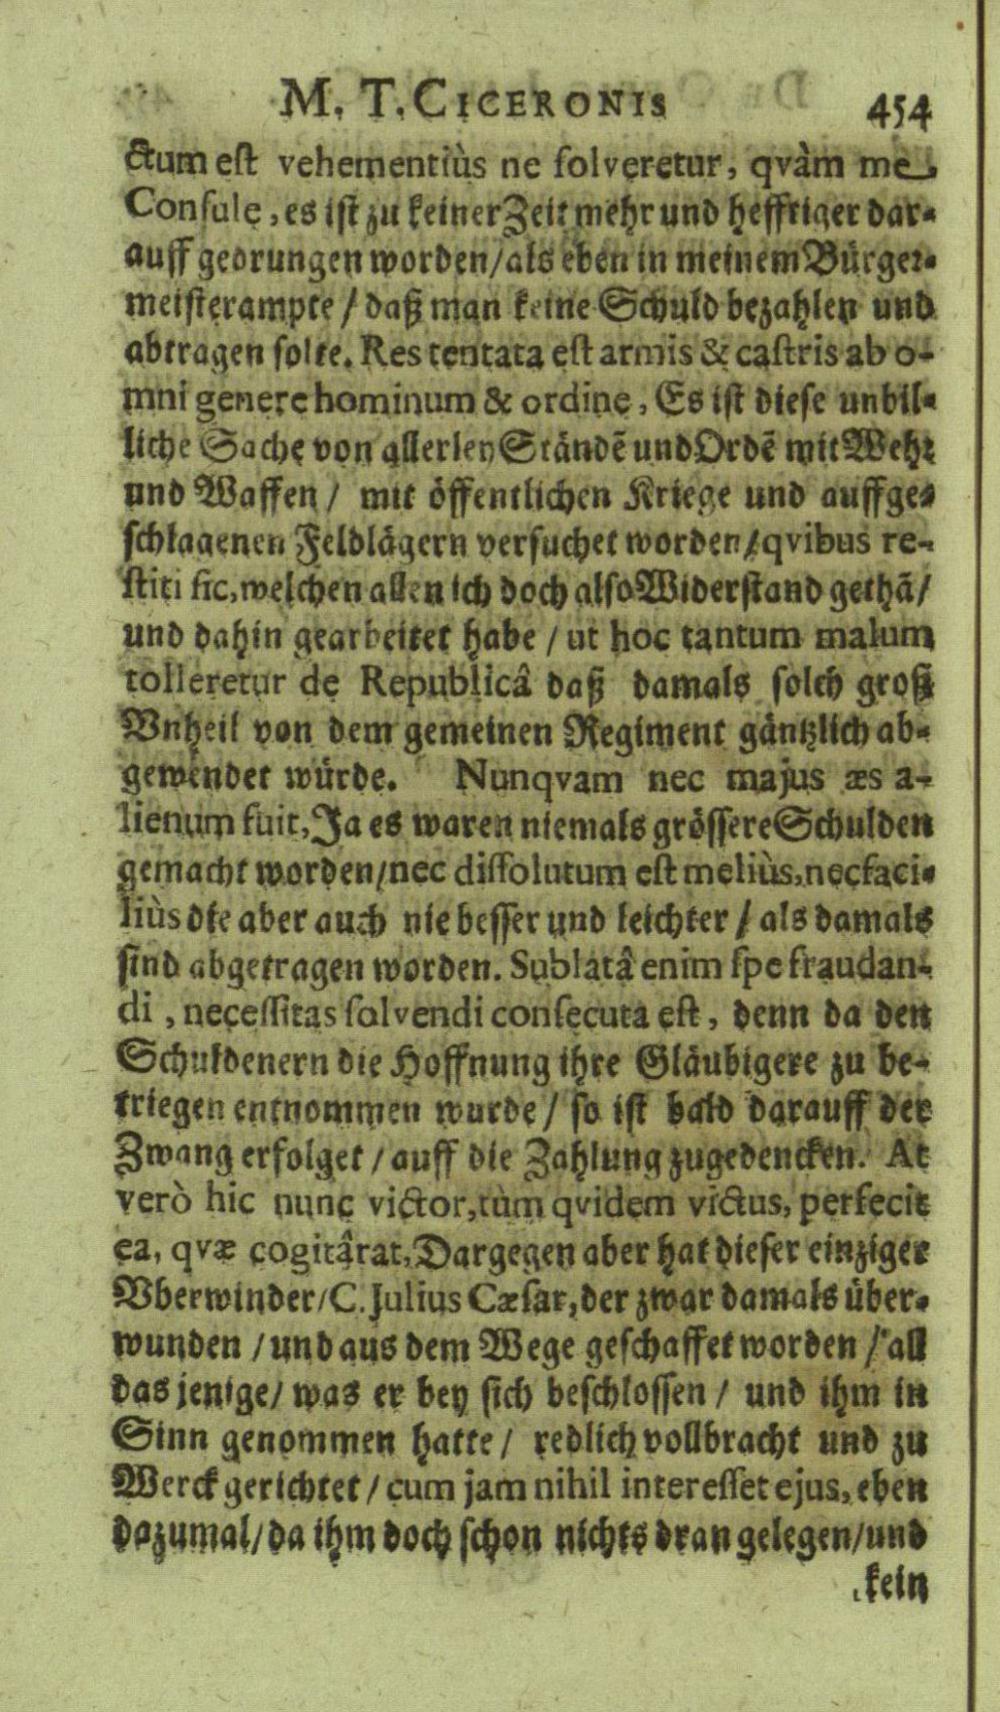 M. T. CICERONIS 454
ctum est vehementiùs ne solveretur, qvàm me
Consule, es ist zu keiner Zeit mehr und hefftiger dar-
auff gedrungen worden/als eben in meinem Bürger-
meisterampte / daß man keine Schuld bezahlen und
abtragen solte. Res tentata est armis & castris ab o-
mni genere hominum & ordine, Es ist diese unbil-
liche Sache von allerley Ständẽ und Ordẽ mit Wehr
und Waffen / mit öffentlichen Kriege und auffge-
schlagenen Feldlägern versuchet worden/qvibus re-
stiti sic, welchen allen ich doch also Widerstand gethã/
und dahin gearbeitet habe / ut hoc tantum malum
tolleretur de Republicâ daß damals solch groß
Vnheil von dem gemeinen Regiment gäntzlich ab-
gewendet würde. Nunqvam nec majus æs a-
lienum fuit, Ja es waren niemals grössere Schulden
gemacht worden/nec dissolutum est meliùs, nec faci-
liùs die aber auch nie besser und leichter / als damals
sind abgetragen worden. Sublatâ enim spe fraudan-
di, necessitas solvendi consecuta est, denn da den
Schuldenern die Hoffnung ihre Gläubigere zu be-
triegen entnommen wurde / so ist bald darauff der
Zwang erfolget / auff die Zahlung zugedencken. At
verò hic nunc victor, tùm qvidem victus, perfecit
ea, qvæ cogitârat, Dargegen aber hat dieser einziger
Vberwinder/C. Julius Cæsar, der zwar damals über-
wunden / und aus dem Wege geschaffet worden / all
das jenige/ was er bey sich beschlossen / und ihm in
Sinn genommen hatte / redlich vollbracht und zu
Werck gerichtet / cum jam nihil interesset ejus, eben
dazumal/da ihm doch schon nichts dran gelegen/und
kein